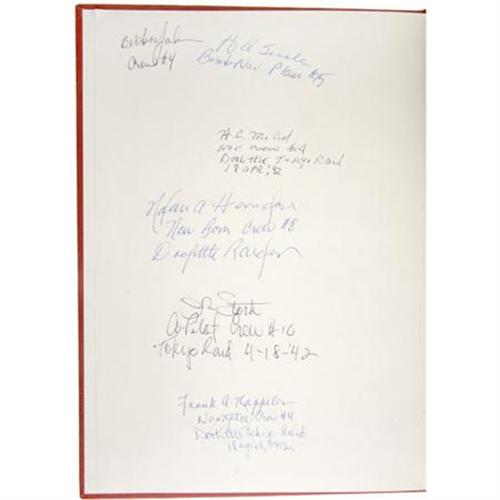 Crew #4
Bomb Nav Plane #15
H.C. McCool
Nav Crew #4
Doolittle Tokyo Raid
18 APR '42
Nolan A Herndon
Nav Bom Crew #8
Doolittle Raider
JR Stork
Co Pilot Crew #10
Tokyo Raid 4-18-'42
Frank A Kappeler
Navigator Crew #11
Doolittle Tokyo Raid
18 April 1942